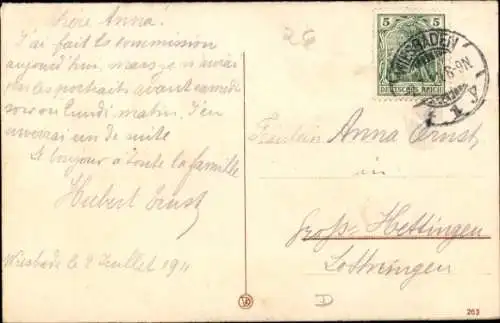 Chère Anna!
J'ai fait ta commission
aujourd'hui, mais je n'aurai
pas les portraits avant samedi
soir ou lundi matin. J'en
enverrai un de suite
Le bonjour à toute la famille
Hubert Ernst
Wiesbade le 9 Juillet 1911
26
5 5
DEUTSCHES REICH
WIESBADEN
8-9N
Fräulein Anna Ernst
in
Groß-Hettingen
Lothringen
D
263